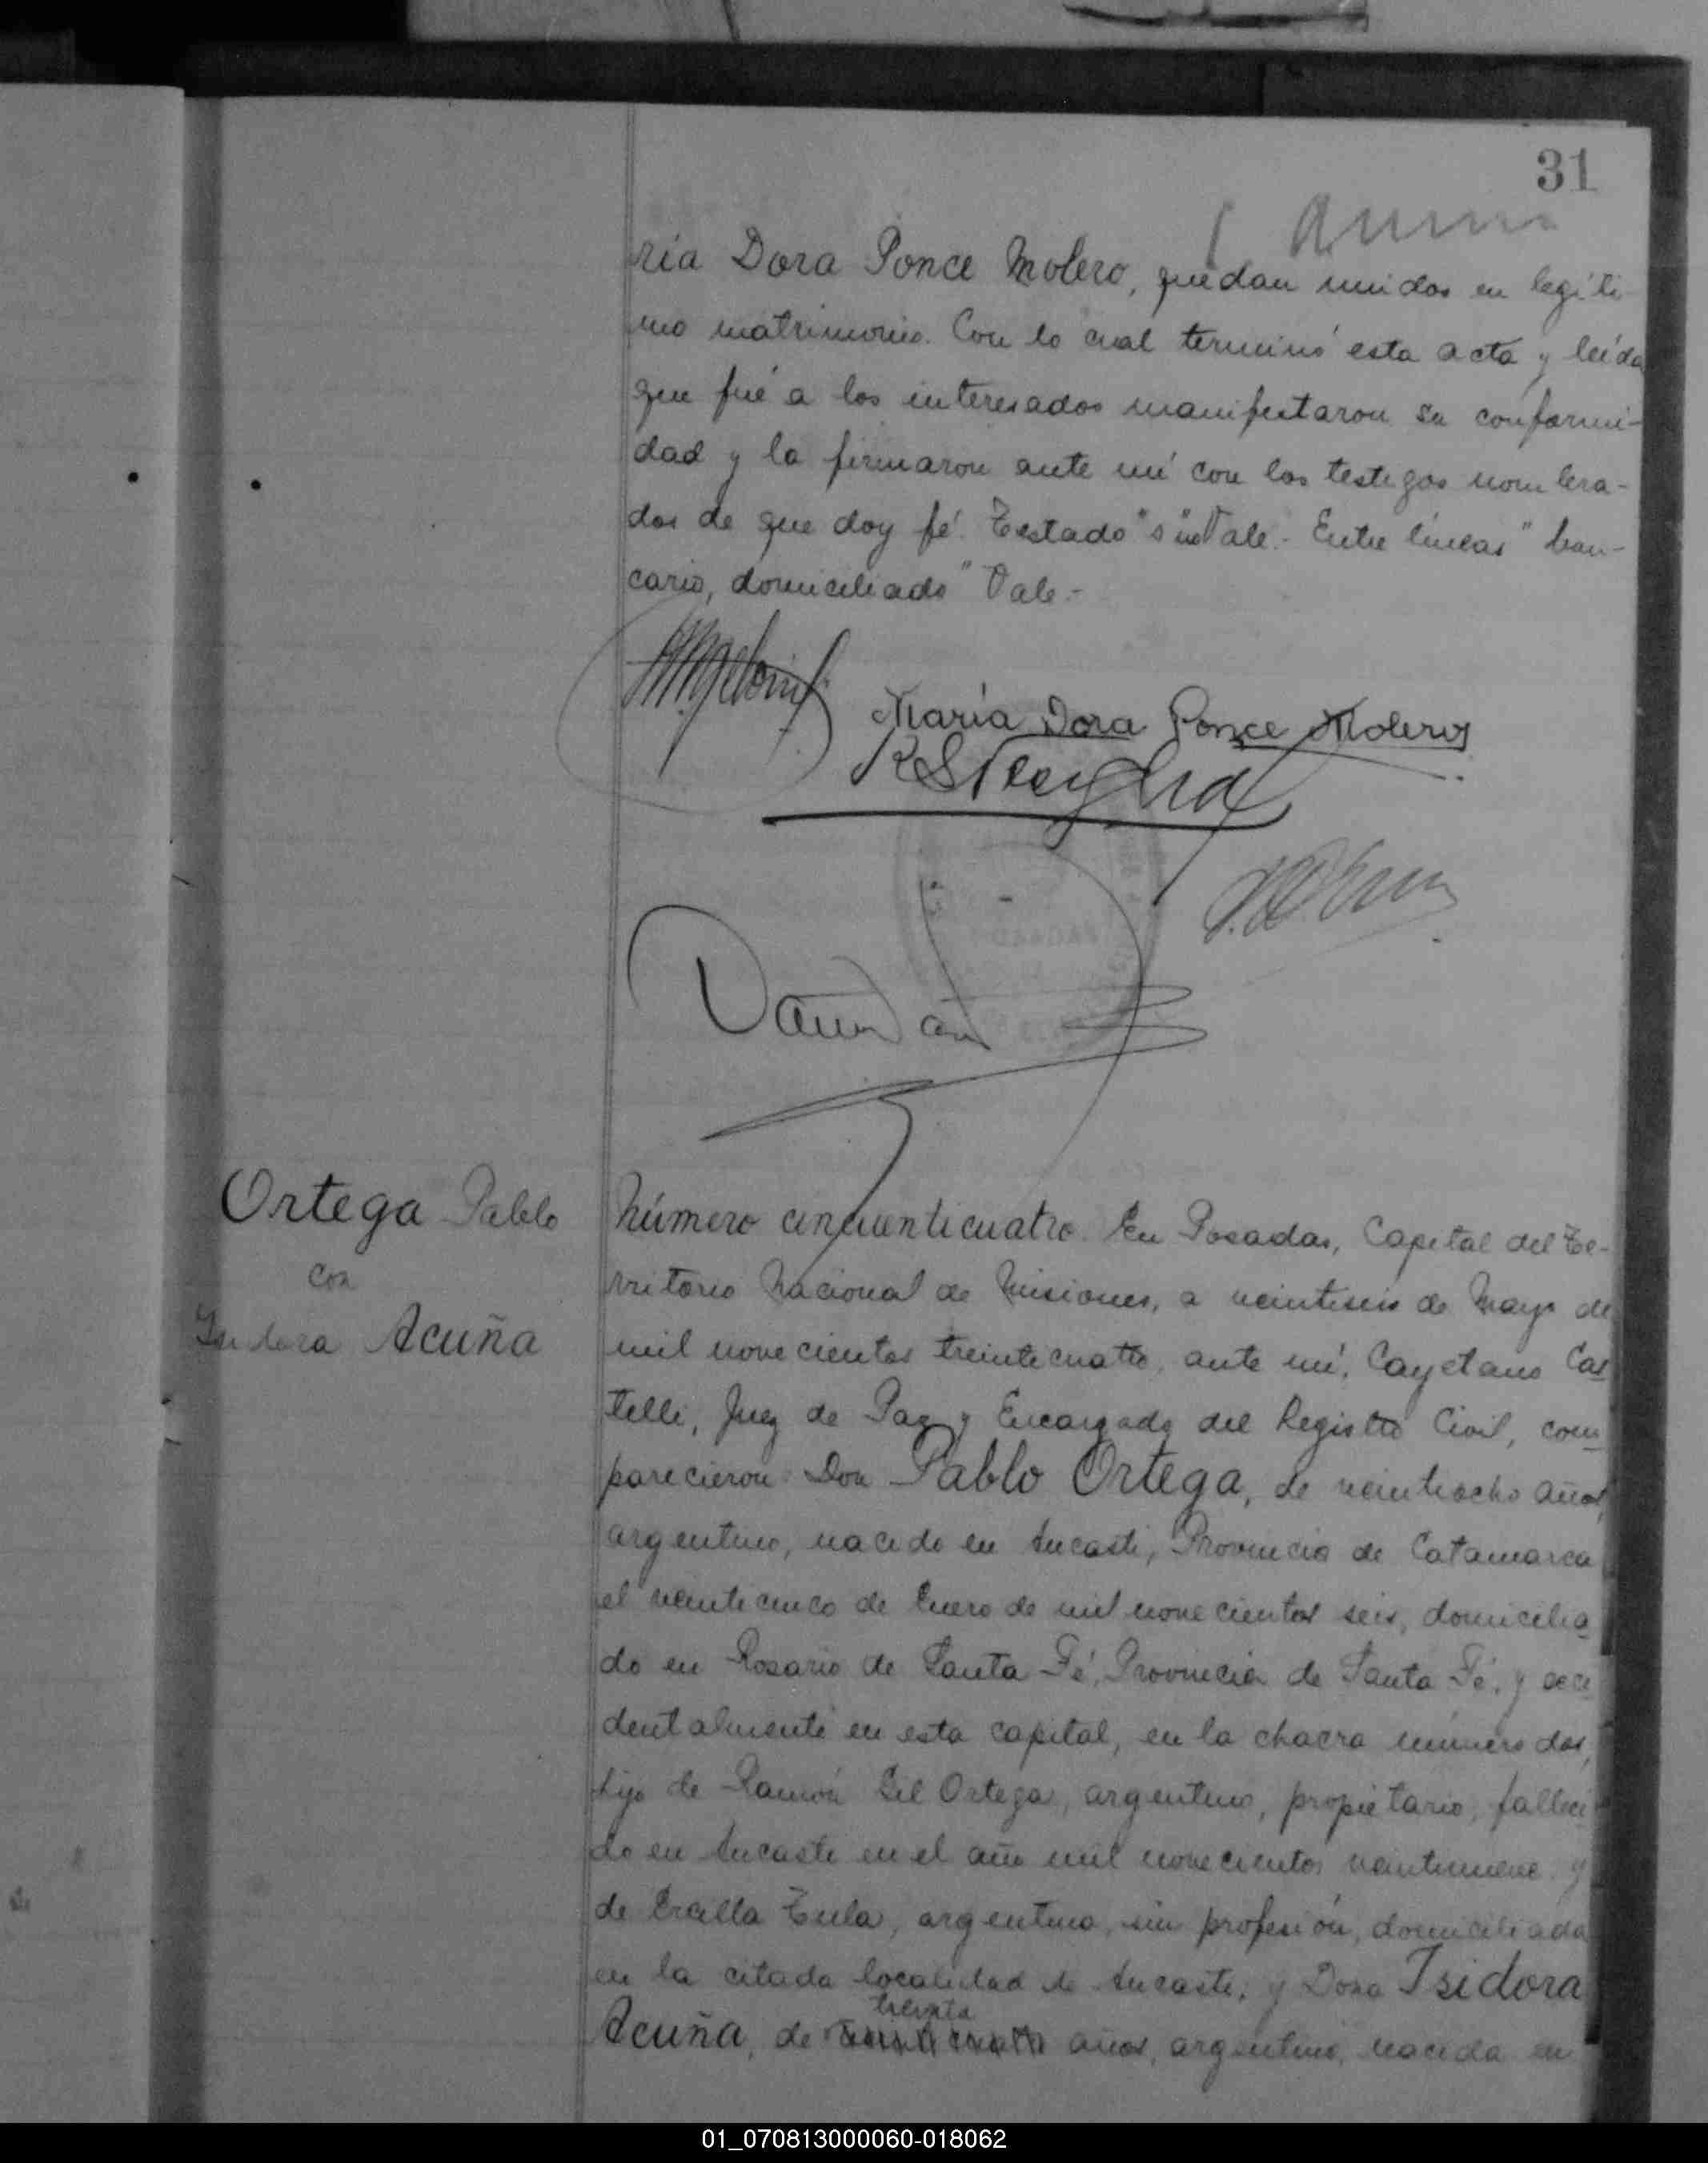 31
ría Dora Ponce Molero, quedan unidos en legíti-
mo matrimonio. Con lo cual terminó esta acta y leída
que fué a los interesados manifestaron su conformi-
dad y la firmaron ante mí con los testigos nombra-
dos de que doy fé. Testado "s" no Vale.- Entre líneas "ban-
cario, domiciliado" Vale.-
María Dora Ponce Molero
Ortega Pablo
con
Isidora Acuña
Número cincuenticuatro. En Posadas, Capital del Te-
rritorio Nacional de Misiones, a veintiseis de Mayo de
mil novecientos treinticuatro, ante mí, Cayetano Cas
telli, Juez de Paz y Encargado del Registro Civil, com
parecieron: Don Pablo Ortega, de veintiocho años,
argentino, nacido en Ancasti, Provincia de Catamarca
el veinticinco de Enero de mil novecientos seis, domicilia
do en Rosario de Santa Fé, Provincia de Santa Fé, y acci
dentalmente en esta capital, en la chacra número dos,
hijo de Ramón Gil Ortega, argentino, propietario, falleci
do en Ancasti en el año mil novecientos veintinueve y
de Ercilla Tula, argentina, sin profesión, domiciliada
en la citada localidad de Ancasti; y Doña Isidora
treinta
Acuña, de años, argentina, nacida en
01_070813000060-018062